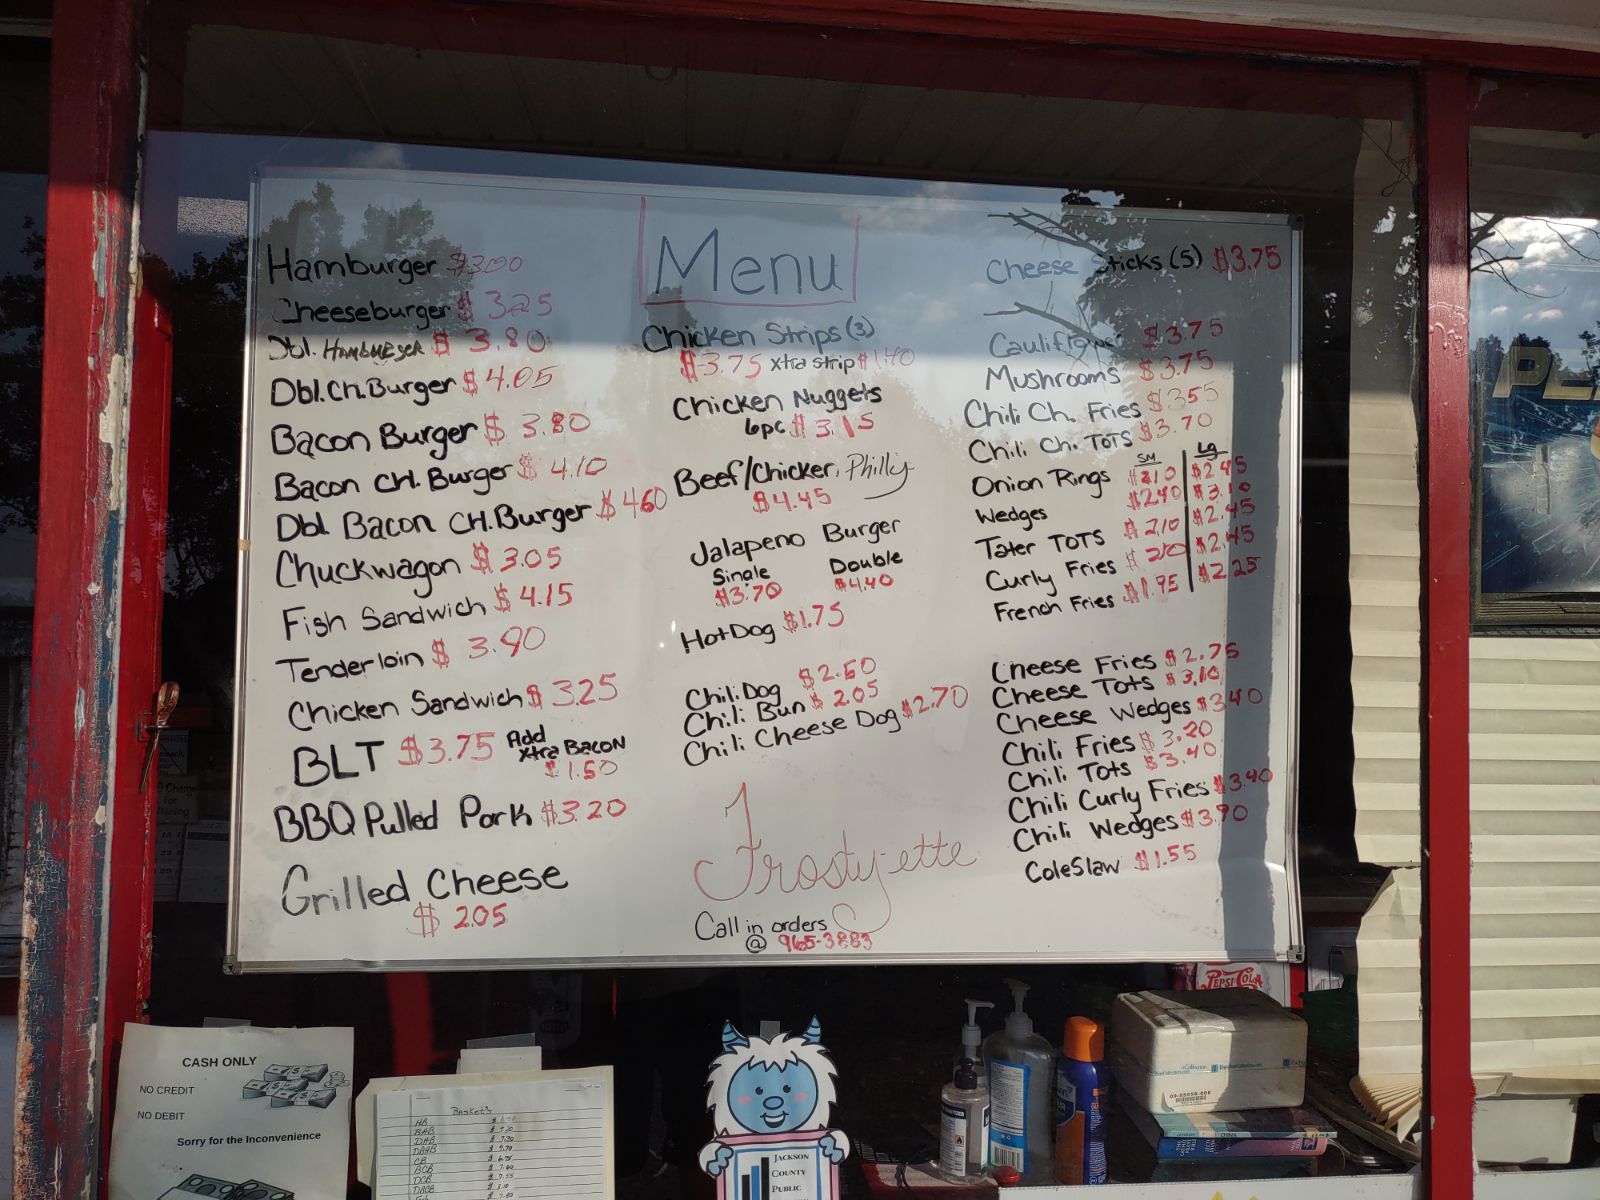 Menu
Hamburger $3.00
Cheeseburger $3.25
Dbl. Hamburger $3.80
Dbl. Ch. Burger $4.05
Bacon Burger $3.80
Bacon CH. Burger $4.10
Dbl Bacon CH. Burger $4.60
Chuckwagon $3.05
Fish Sandwich $4.15
Tenderloin $3.90
Chicken Sandwich $3.25
BLT $3.75 Add Xtra Bacon
$1.50
BBQ Pulled Pork $3.20
Grilled Cheese
$2.05
Chicken Strips (3)
$3.75 Xtra Strip $1.40
Chicken Nuggets
6pc $3.15
Beef/Chicken Philly
$4.45
Jalapeno Burger
Single Double
$3.70 $4.40
Hot Dog $1.75
Chili Dog $2.50
Chili Bun $2.05
Chili Cheese Dog $2.70
Frosty-ette
Call in orders
@ 965-3883
Cheese Sticks (5) $3.75
Cauliflower $3.75
Mushrooms $3.75
Chili Ch. Fries $3.55
Chili Ch. TOTS $3.70
SM Lg
Onion Rings $2.10 $2.45
Wedges $2.40 $3.10
Tater TOTS $2.10 $2.45
Curly Fries $2.10 $2.45
French Fries $1.95 $2.25
Cheese Fries $2.75
Cheese Tots $3.10
Cheese Wedges $3.40
Chili Fries $3.20
Chili Tots $3.40
Chili Curly Fries $3.40
Chili Wedges $3.90
ColeSlaw $1.55
CASH ONLY
NO CREDIT
NO DEBIT
Sorry for the Inconvenience
Baskets
HB
BHB $7.20
DHB $7.30
DBHB $7.70
CB
BCB
DCB $7.55
DBCB
JACKSON
COUNTY
PUBLIC
PEPSI COLA